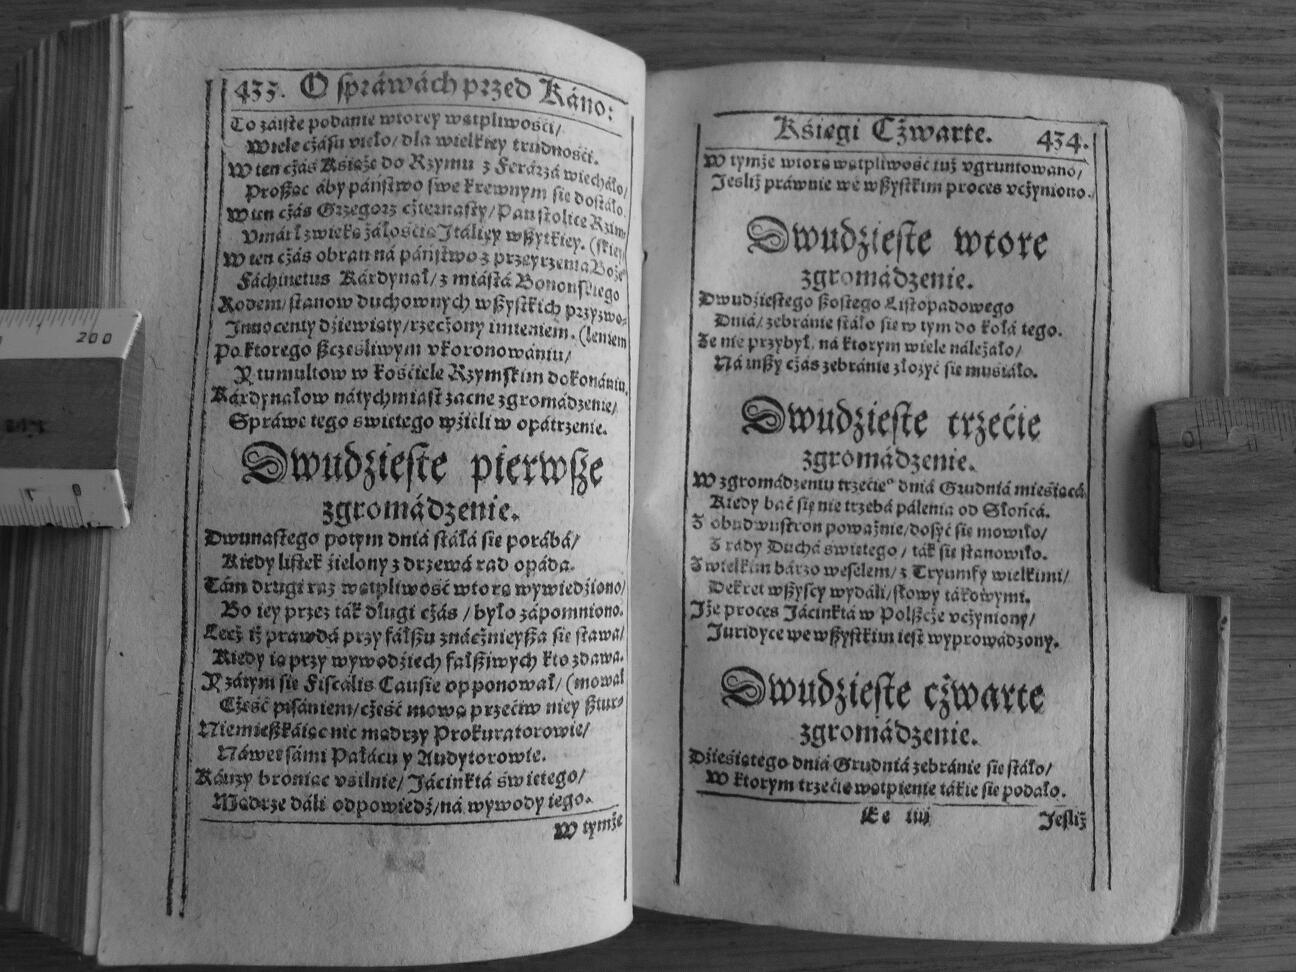 433. O spráwách przed Káno:
To záiste podánie wtorey wątpliwośći/
Wiele cżásu wźięło/ dla wielkiey trudnośći.
W ten cżás Książe do Rzymu z Ferárzá wiecháło/
Prosząc áby páństwo swe krewnym się dostáło.
W ten cżás Grzegorz cżternasty/ Pan stolice Rzim:
Vmárł z wielką żáłośćią Itáliey wszytkiey. (skiey/
W ten cżás obran ná páństwo z przeyrzenia Boże°
Fáchinetus Kárdynał/ z miástá Bononskiego
Rodem/ stanow duchownych wszystkich przyzwo-
Innocenty dźiewiąty/ rzecżony imieniem. (leniem
Po ktorego szczęśliwym vkoronowániu/
Y tumultow w kośćiele Rzymskim dokonániu.
Kárdynałow nátychmiast zacne zgromádzenie/
Spráwę tego świętego wźięli w opátrzenie.
Dwudzieste pierwsze
zgromádzenie.
Dwunastego potym dniá stáłá się porábá/
Kiedy listek źielony z drzewá rad opáda.
Tám drugi raz wątpliwość wtorą wywiedźiono/
Bo iey przez ták długi cżás / było zápomniono.
Lecż iż prawdá przy fałszu znácżnieysza się stawa/
Kiedy ią przy wywodźiech fałszjwych kto zdawa.
Y zátym się Fiscalis Causie opponował/ (mował
Cżęść pisániem/ cżęść mową przećiw niey sztur-
Niemieszkáiąc nic mądrzy Prokuratorowie/
Náwet sámi Páłácu y Audytorowie.
Káuzy broniąc vsilnie/ Jácinktá świętego/
Mądrze dáli odpowiedź/ ná wywody iego.
W tymże
Księgi Cżwarte. 434.
W tymże wtorą wątpliwość iuż vgruntowano/
Jesliż práwnie we wszystkim proces vcżyniono.
Dwudzieste wtore
zgromádzenie.
Dwudźiestego szostego Listopadowego
Dniá/ zebránie stáło się w tym do kołá tego.
Że nie przybył, ná ktorym wiele náleżáło/
Ná inszy cżás zebránie złożyć się musiáło.
Dwudzieste trzećie
zgromádzenie.
W zgromádzeniu trzećie° dniá Grudniá mieśiącá,
Kiedy bać się nie trzebá pálenia od Słońcá.
Z obudwustron poważnie/ dosyć się mowiło/
Z rády Duchá świętego / ták się stánowiło.
Z wielkim bárzo weselem/ z Tryumfy wielkimi/
Dekret wszyscy wydáli/ słowy tákowymi.
Iże proces Jácinktá w Polszcże vcżyniony/
Juridyce we wszystkim iest wyprowádzony.
Dwudzieste cżwarte
zgromádzenie.
Dźieśiątego dniá Grudniá zebránie się stáło/
W ktorym trzećie wątpienie tákie się podało.
Ee iiij Jesliż